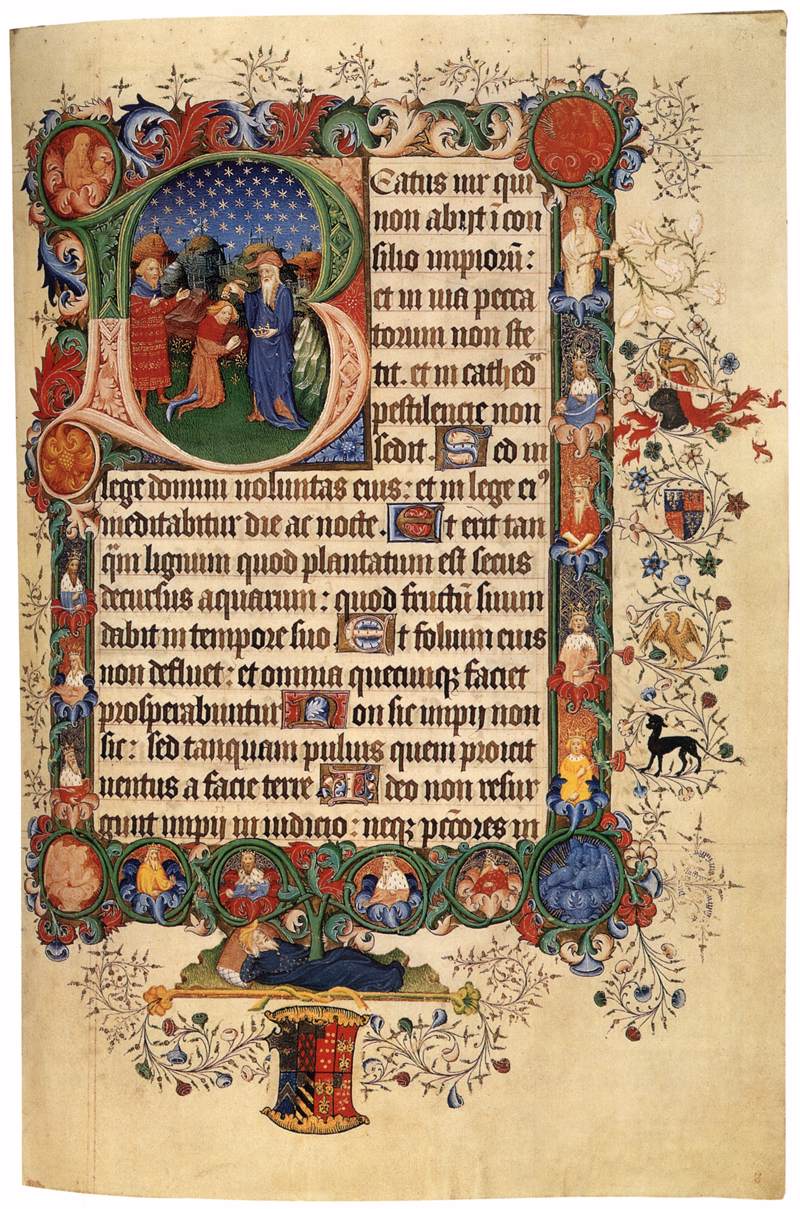 Beatus uir qui
non abijt ī con
silio impiorū:
et in uia pecca
torum non ste
tit. et in cathedᵃ
pestilencie non
sedit. Sed in
lege domini uoluntas eius: et in lege ei⁹
meditabitur die ac nocte. Et erit tan
qͣm lignum quod plantatum est secus
decursus aquarum: quod fructū suum
dabit in tempore suo. Et folium eius
non defluet: et omnia quecunqꝫ faciet
prosperabuntur Non sic impij non
sic: sed tanquam puluis quem proicit
uentus a facie terre Ideo non resur
gunt impij in iudicio: neqꝫ pc̄cores in